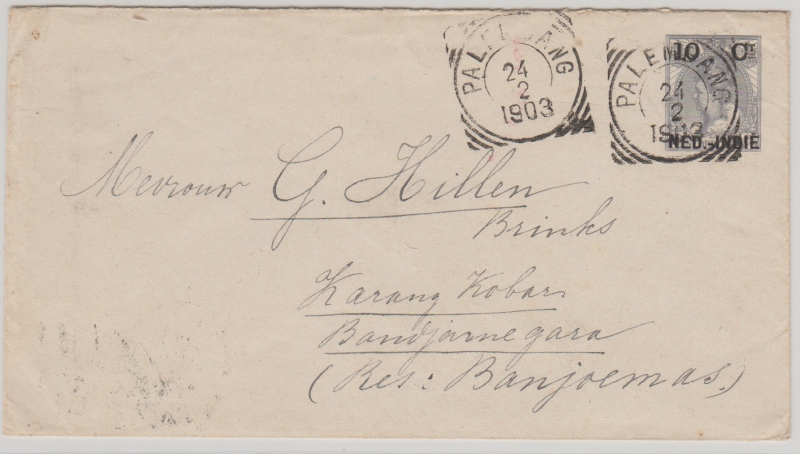 PALEMBANG
24
2
1903
PALEMBANG
24
2
1903
10 Ct
NED.-INDIË
Mevrouw G. Hillen
Brinks
Karang Kobar
Bandjarnegara
(Res: Banjoemas.)